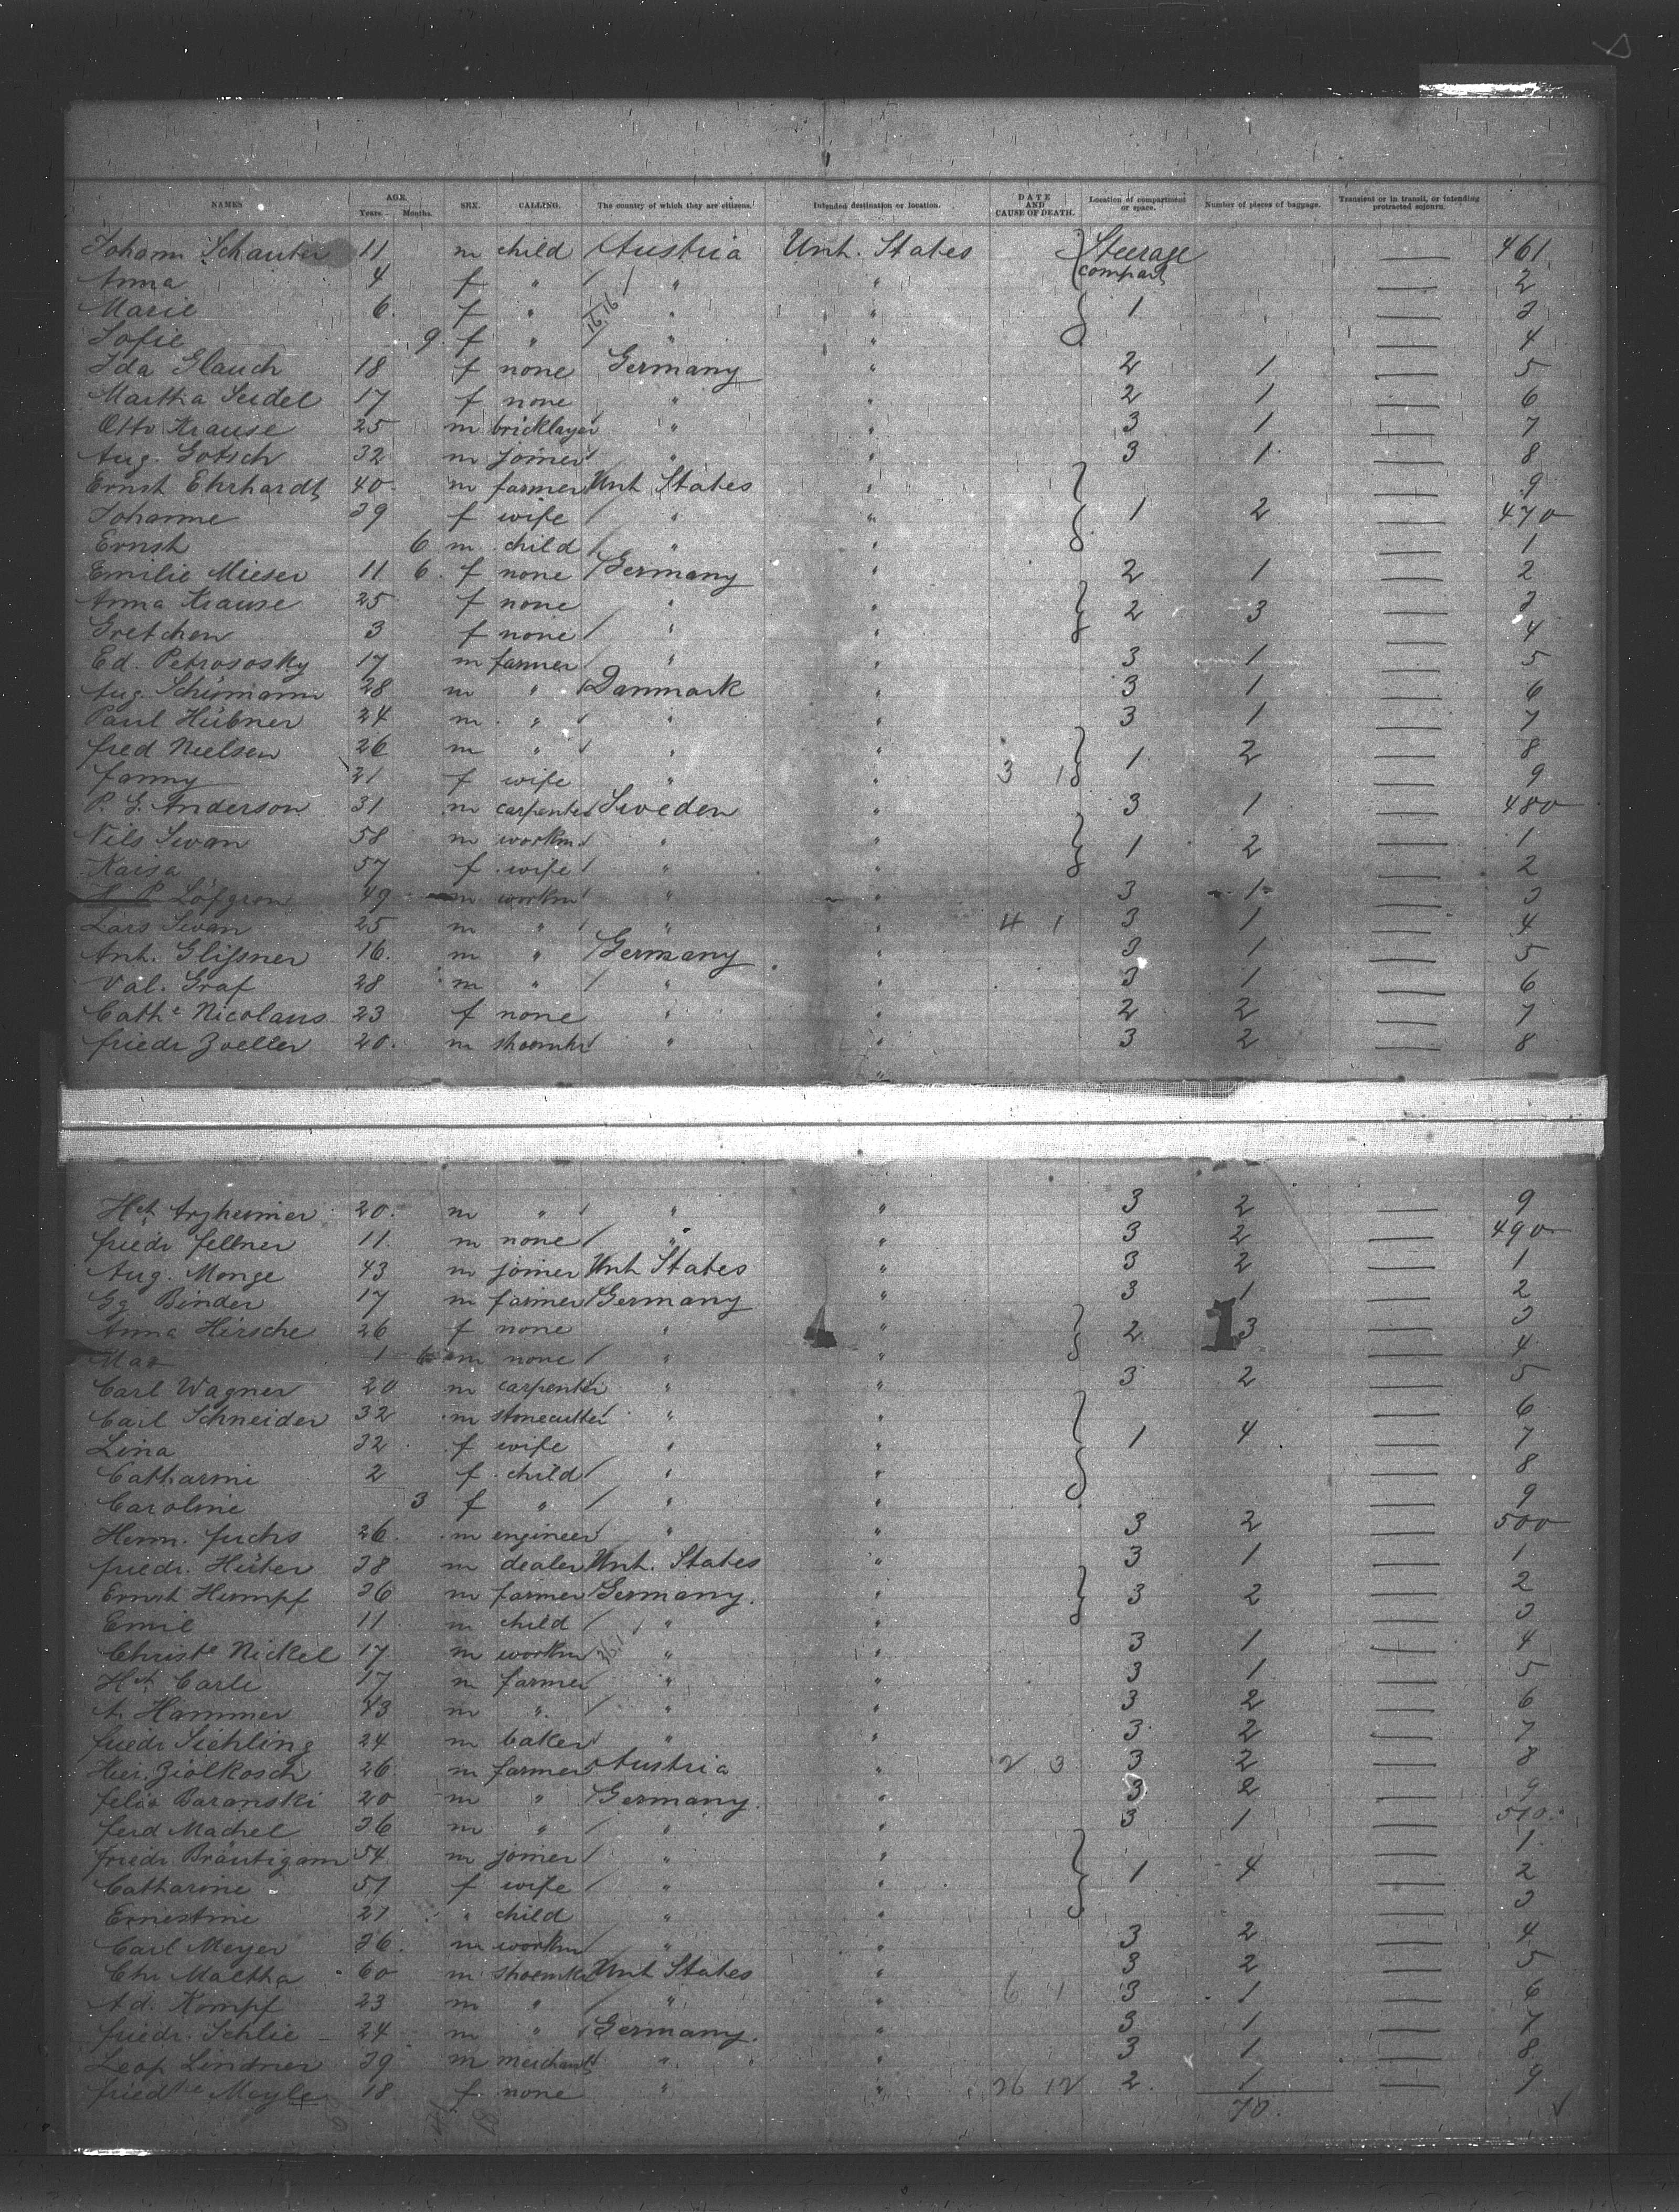 NAMES AGE. Years. Months. SEX. CALLING. The country of which they are citizens. Intended destination or location. DATE AND CAUSE OF DEATH. Location of compartment or space. Number of pieces of baggage. Transient or in transit, or intending protracted sojourn.
Johann Schauter 11 m child Austria Unit. States Steerage compart — 461
Anna 4 f " " " — 2
Marie 6 f " " " 1 — 3
Sofie 9 f " " " — 4
Ida Glauch 18 f none Germany " 2 1 — 5
Martha Seidel 17 f none " " 2 1 — 6
Otto Krause 25 m bricklayer " " 3 1 — 7
Aug. Gotsch 32 m joiner " " 3 1 — 8
Ernst Ehrhardt 40 m farmer Unit States " — 9
Johanne 39 f wife " " 1 2 — 470
Ernst 6 m child " " — 1
Emilie Mieser 11 6 f none Germany " 2 1 — 2
Anna Krause 25 f none " " 2 3 — 3
Gretchen 3 f none " " — 4
Ed. Petrososky 17 m farmer " " 3 1 — 5
Aug. Schümann 28 m " Danmark " 3 1 — 6
Paul Hübner 24 m " " " 3 1 — 7
fred Nielsen 26 m " " " 1 2 — 8
fanny 21 f wife " " 3 1 — 9
P. G. Anderson 31 m carpenter Sweden " 3 1 — 480
Nils Swan 58 m workm. " " 1 2 — 1
Kaisa 57 f wife " " — 2
P. Löfgron 49 m workm " " 3 1 — 3
Lars Swan 25 m " " " 4 1 3 1 — 4
Ant. Glißner 16 m " Germany " 3 1 — 5
Val. Graf 28 m " " " 3 1 — 6
Cathe Nicolaus 23 f none " " 2 2 — 7
friedr Zoeller 20 m shoemkr " " 3 2 — 8
"
Hch Arzheimer 20 m " " " 3 2 — 9
friedr fellner 11 m none " " 3 2 — 490
Aug. Monge 43 m joiner Unit States " 3 2 — 1
Gg Binder 17 m farmer Germany " 3 1 — 2
Anna Hirsche 26 f none " " 2 3 — 3
Max 1 6 m none " " — 4
Carl Wagner 20 m carpenter " " 3 2 — 5
Carl Schneider 32 m stonecutter " " — 6
Lina 32 f wife " " 1 4 — 7
Catharine 2 f child " " — 8
Caroline 3 f " " " — 9
Herm. fuchs 26 m engineer " " 3 2 — 500
friedr. Hüter 38 m dealer Unit. States " 3 1 — 1
Ernst Humpf 36 m farmer Germany. " 3 2 — 2
Emil 11 m child " " — 3
Christe Nickel 17 m workm " " 3 1 — 4
Hch Carle 17 m farmer " " 3 1 — 5
A. Hammer 43 m " " " 3 2 — 6
friedr Siehling 24 m baker " " 3 2 — 7
Hier. Ziolkosch 26 m farmer Austria " 2 3 3 2 — 8
felix Baranski 20 m " Germany. " 3 2 — 9
ferd Machel 36 m " " " 3 1 — 510
friedr Bräutigam 54 m joiner " " — 1
Catharine 51 f wife " " 1 4 — 2
Ernestine 21 " child " " — 3
Carl Meyer 36 m workm " " 3 2 — 4
Chr Maltha 60 m shoemkr Unit States " 3 2 — 5
Ad. Kompf 23 m " " " 6 1 3 1 — 6
friedr. Schlie 24 m " Germany. " 3 1 — 7
Leop Lindner 39 m merchant " " 3 1 — 8
friedke Meyle 18 f none " " 26 12 2 1 — 9
70.